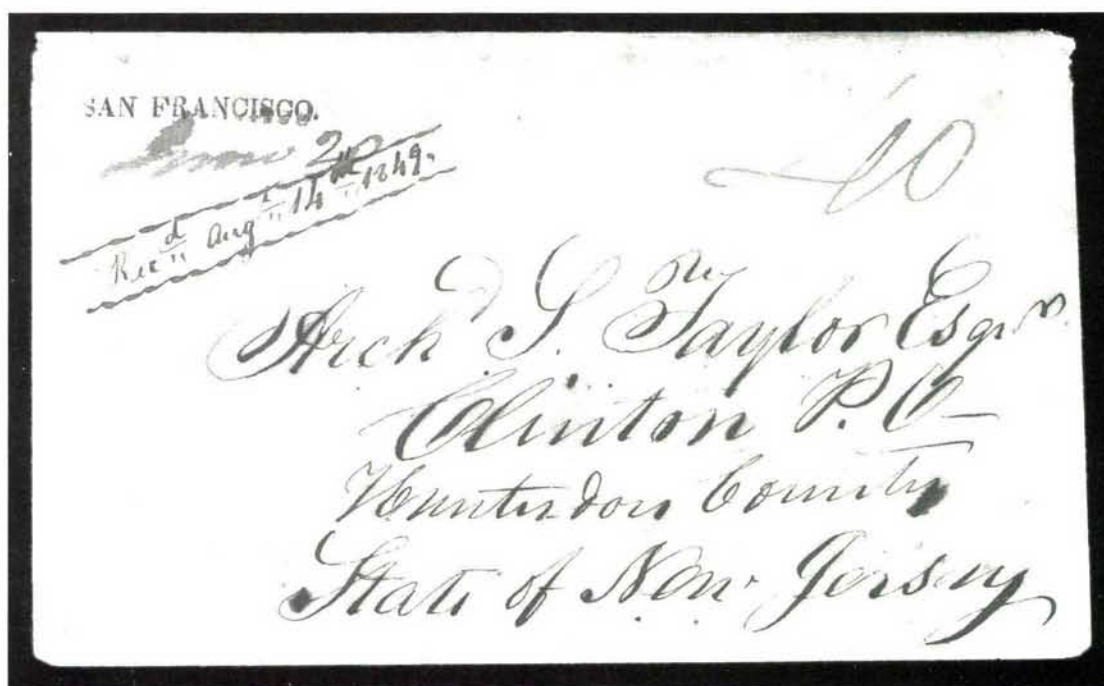 SAN FRANCISCO.
20
Rec'd Augt 14th 1849.
40
Archd S. Taylor Esqr.
Clinton P. O
Hunterdon County
State of New Jersey